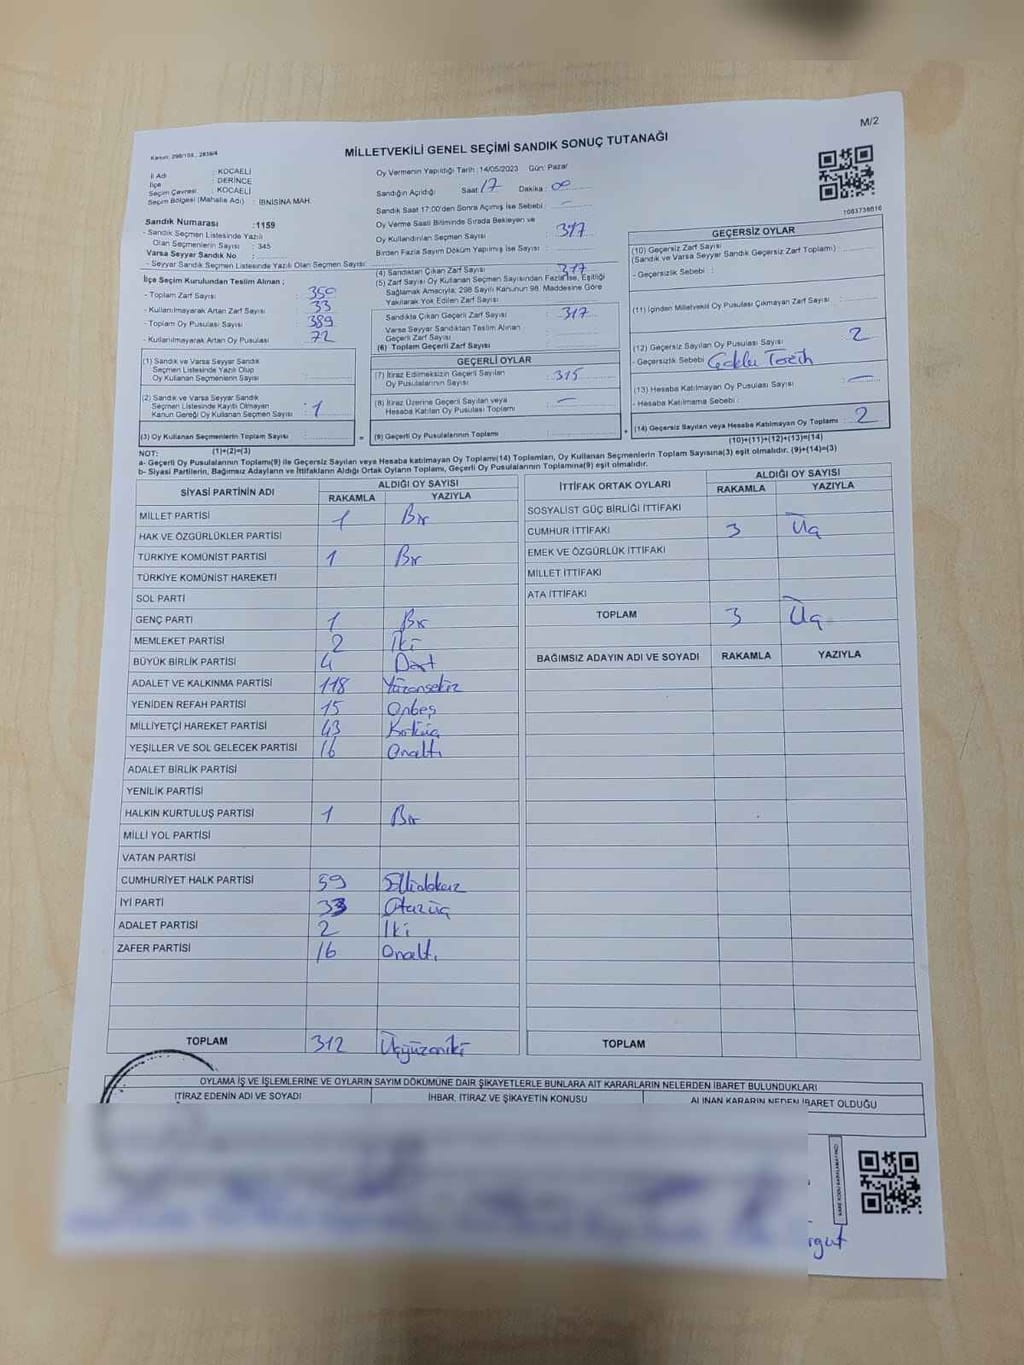 M/2
Kanun: 298/105 , 2839/4
MİLLETVEKİLİ GENEL SEÇİMİ SANDIK SONUÇ TUTANAĞI
İl Adı : KOCAELİ
İlçe : DERİNCE
Seçim Çevresi : KOCAELİ
Seçim Bölgesi (Mahalle Adı) : İBNİSİNA MAH.
Oy Vermenin Yapıldığı Tarih :14/05/2023 Gün: Pazar
Sandığın Açıldığı Saat 17 Dakika : 00
Sandık Saat 17:00'den Sonra Açımış İse Sebebi : —
Oy Verme Saati Bitiminde Sırada Bekleyen ve
Oy Kullandırılan Seçmen Sayısı : 317
Birden Fazla Sayım Döküm Yapılmış İse Sayısı :
Sandık Numarası :1159
- Sandık Seçmen Listesinde Yazılı
Olan Seçmenlerin Sayısı : 345
Varsa Seyyar Sandık No :
- Seyyar Sandık Seçmen Listesinde Yazılı Olan Seçmen Sayısı:
İlçe Seçim Kurulundan Teslim Alınan ;
- Toplam Zarf Sayısı : 350
- Kullanılmayarak Artan Zarf Sayısı : 33
- Toplam Oy Pusulası Sayısı : 389
- Kullanılmayarak Artan Oy Pusulası : 72
(4) Sandıktan Çıkan Zarf Sayısı : 317
(5) Zarf Sayısı Oy Kullanan Seçmen Sayısından Fazla İse, Eşitliği
Sağlamak Amacıyla; 298 Sayılı Kanunun 98. Maddesine Göre
Yakılarak Yok Edilen Zarf Sayısı :
Sandıkta Çıkan Geçerli Zarf Sayısı : 317
Varsa Seyyar Sandıktan Teslim Alınan
Geçerli Zarf Sayısı :
(6) Toplam Geçerli Zarf Sayısı :
(1) Sandık ve Varsa Seyyar Sandık
Seçmen Listesinde Yazılı Olup
Oy Kullanan Seçmenlerin Sayısı :
(2) Sandık ve Varsa Seyyar Sandık
Seçmen Listesinde Kayıtlı Olmayan
Kanun Gereği Oy Kullanan Seçmen Sayısı : 1
(3) Oy Kullanan Seçmenlerin Toplam Sayısı :
=
GEÇERLİ OYLAR
(7) İtiraz Edilmeksizin Geçerli Sayılan
Oy Pusulalarının Sayısı : 315
(8) İtiraz Üzerine Geçerli Sayılan veya
Hesaba Katılan Oy Pusulası Toplamı : —
(9) Geçerli Oy Pusulalarının Toplamı :
+
1083738616
GEÇERSİZ OYLAR
(10) Geçersiz Zarf Sayısı
(Sandık ve Varsa Seyyar Sandık Geçersiz Zarf Toplamı) :
- Geçersizlik Sebebi :
(11) İçinden Milletvekili Oy Pusulası Çıkmayan Zarf Sayısı :
(12) Geçersiz Sayılan Oy Pusulası Sayısı : 2
- Geçersizlik Sebebi :
(13) Hesaba Katılmayan Oy Pusulası Sayısı : —
- Hesaba Katılmama Sebebi :
(14) Geçersiz Sayılan veya Hesaba Katılmayan Oy Toplamı : 2
NOT: (1)+(2)=(3)
(10)+(11)+(12)+(13)=(14)
a- Geçerli Oy Pusulalarının Toplamı(9) ile Geçersiz Sayılan veya Hesaba katılmayan Oy Toplamı(14) Toplamları, Oy Kullanan Seçmenlerin Toplam Sayısına(3) eşit olmalıdır. (9)+(14)=(3)
b- Siyasi Partilerin, Bağımsız Adayların ve İttifakların Aldığı Ortak Oyların Toplamı, Geçerli Oy Pusulalarının Toplamına(9) eşit olmalıdır.
SİYASİ PARTİNİN ADI
ALDIĞI OY SAYISI
RAKAMLA YAZIYLA
MİLLET PARTİSİ 1 Bir
HAK VE ÖZGÜRLÜKLER PARTİSİ
TÜRKİYE KOMÜNİST PARTİSİ 1 Bir
TÜRKİYE KOMÜNİST HAREKETİ
SOL PARTİ
GENÇ PARTİ 1 Bir
MEMLEKET PARTİSİ 2 İki
BÜYÜK BİRLİK PARTİSİ 4 Dört
ADALET VE KALKINMA PARTİSİ 118 Yüzonsekiz
YENİDEN REFAH PARTİSİ 15 Onbeş
MİLLİYETÇİ HAREKET PARTİSİ 43 Kırküç
YEŞİLLER VE SOL GELECEK PARTİSİ 16 Onaltı
ADALET BİRLİK PARTİSİ
YENİLİK PARTİSİ
HALKIN KURTULUŞ PARTİSİ 1 Bir
MİLLİ YOL PARTİSİ
VATAN PARTİSİ
CUMHURİYET HALK PARTİSİ 59 Ellidokuz
İYİ PARTİ 33 Otuzüç
ADALET PARTİSİ 2 İki
ZAFER PARTİSİ 16 Onaltı
TOPLAM 312 Üçyüzoniki
İTTİFAK ORTAK OYLARI
ALDIĞI OY SAYISI
RAKAMLA YAZIYLA
SOSYALİST GÜÇ BİRLİĞİ İTTİFAKI
CUMHUR İTTİFAKI 3 Üç
EMEK VE ÖZGÜRLÜK İTTİFAKI
MİLLET İTTİFAKI
ATA İTTİFAKI
TOPLAM 3 Üç
BAĞIMSIZ ADAYIN ADI VE SOYADI RAKAMLA YAZIYLA
TOPLAM
OYLAMA İŞ VE İŞLEMLERİNE VE OYLARIN SAYIM DÖKÜMÜNE DAİR ŞİKAYETLERLE BUNLARA AİT KARARLARIN NELERDEN İBARET BULUNDUKLARI
İTİRAZ EDENİN ADI VE SOYADI İHBAR, İTİRAZ VE ŞİKAYETİN KONUSU ALINAN KARARIN NEDEN İBARET OLDUĞU